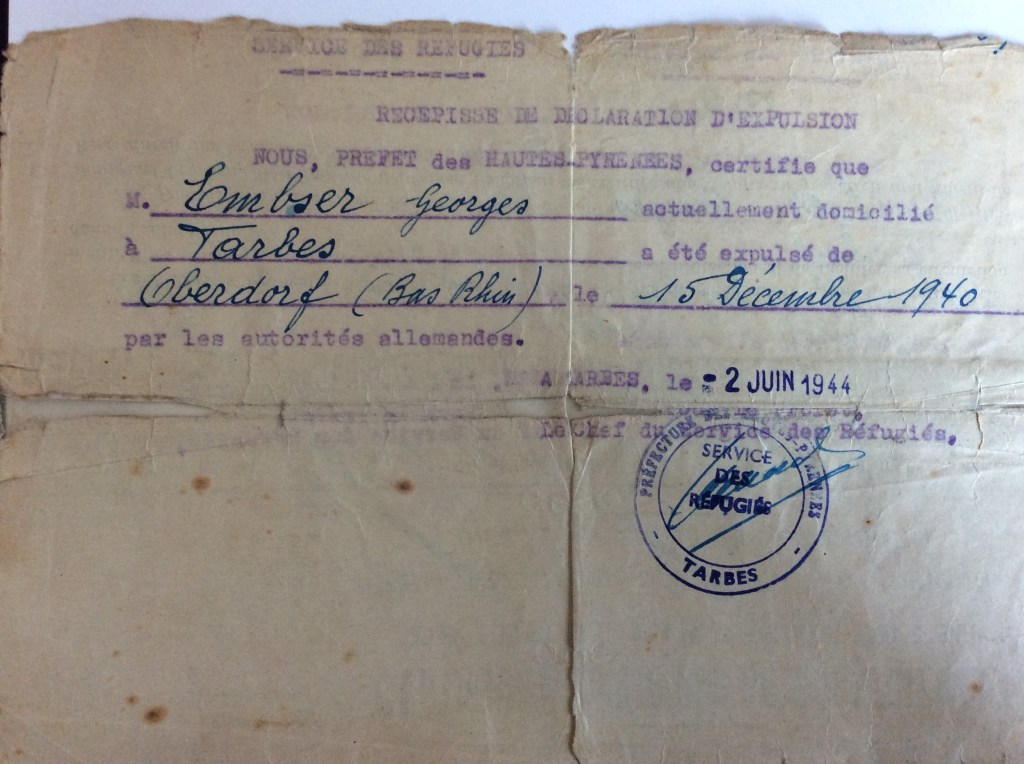 SERVICE DES REFUGIES
RECEPISSE DE DECLARATION D'EXPULSION
NOUS, PREFET des HAUTES-PYRENEES, certifie que
M. Embser Georges actuellement domicilié
à Tarbes a été expulsé de
Oberdorf (Bas Rhin) le 15 Décembre 1940
par les autorités allemandes.
A TARBES, le - 2 JUIN 1944
Le Chef du Service des Réfugiés,
PRÉFECTURE PYRÉNÉES
SERVICE
DES
RÉFUGIÉS
- TARBES -